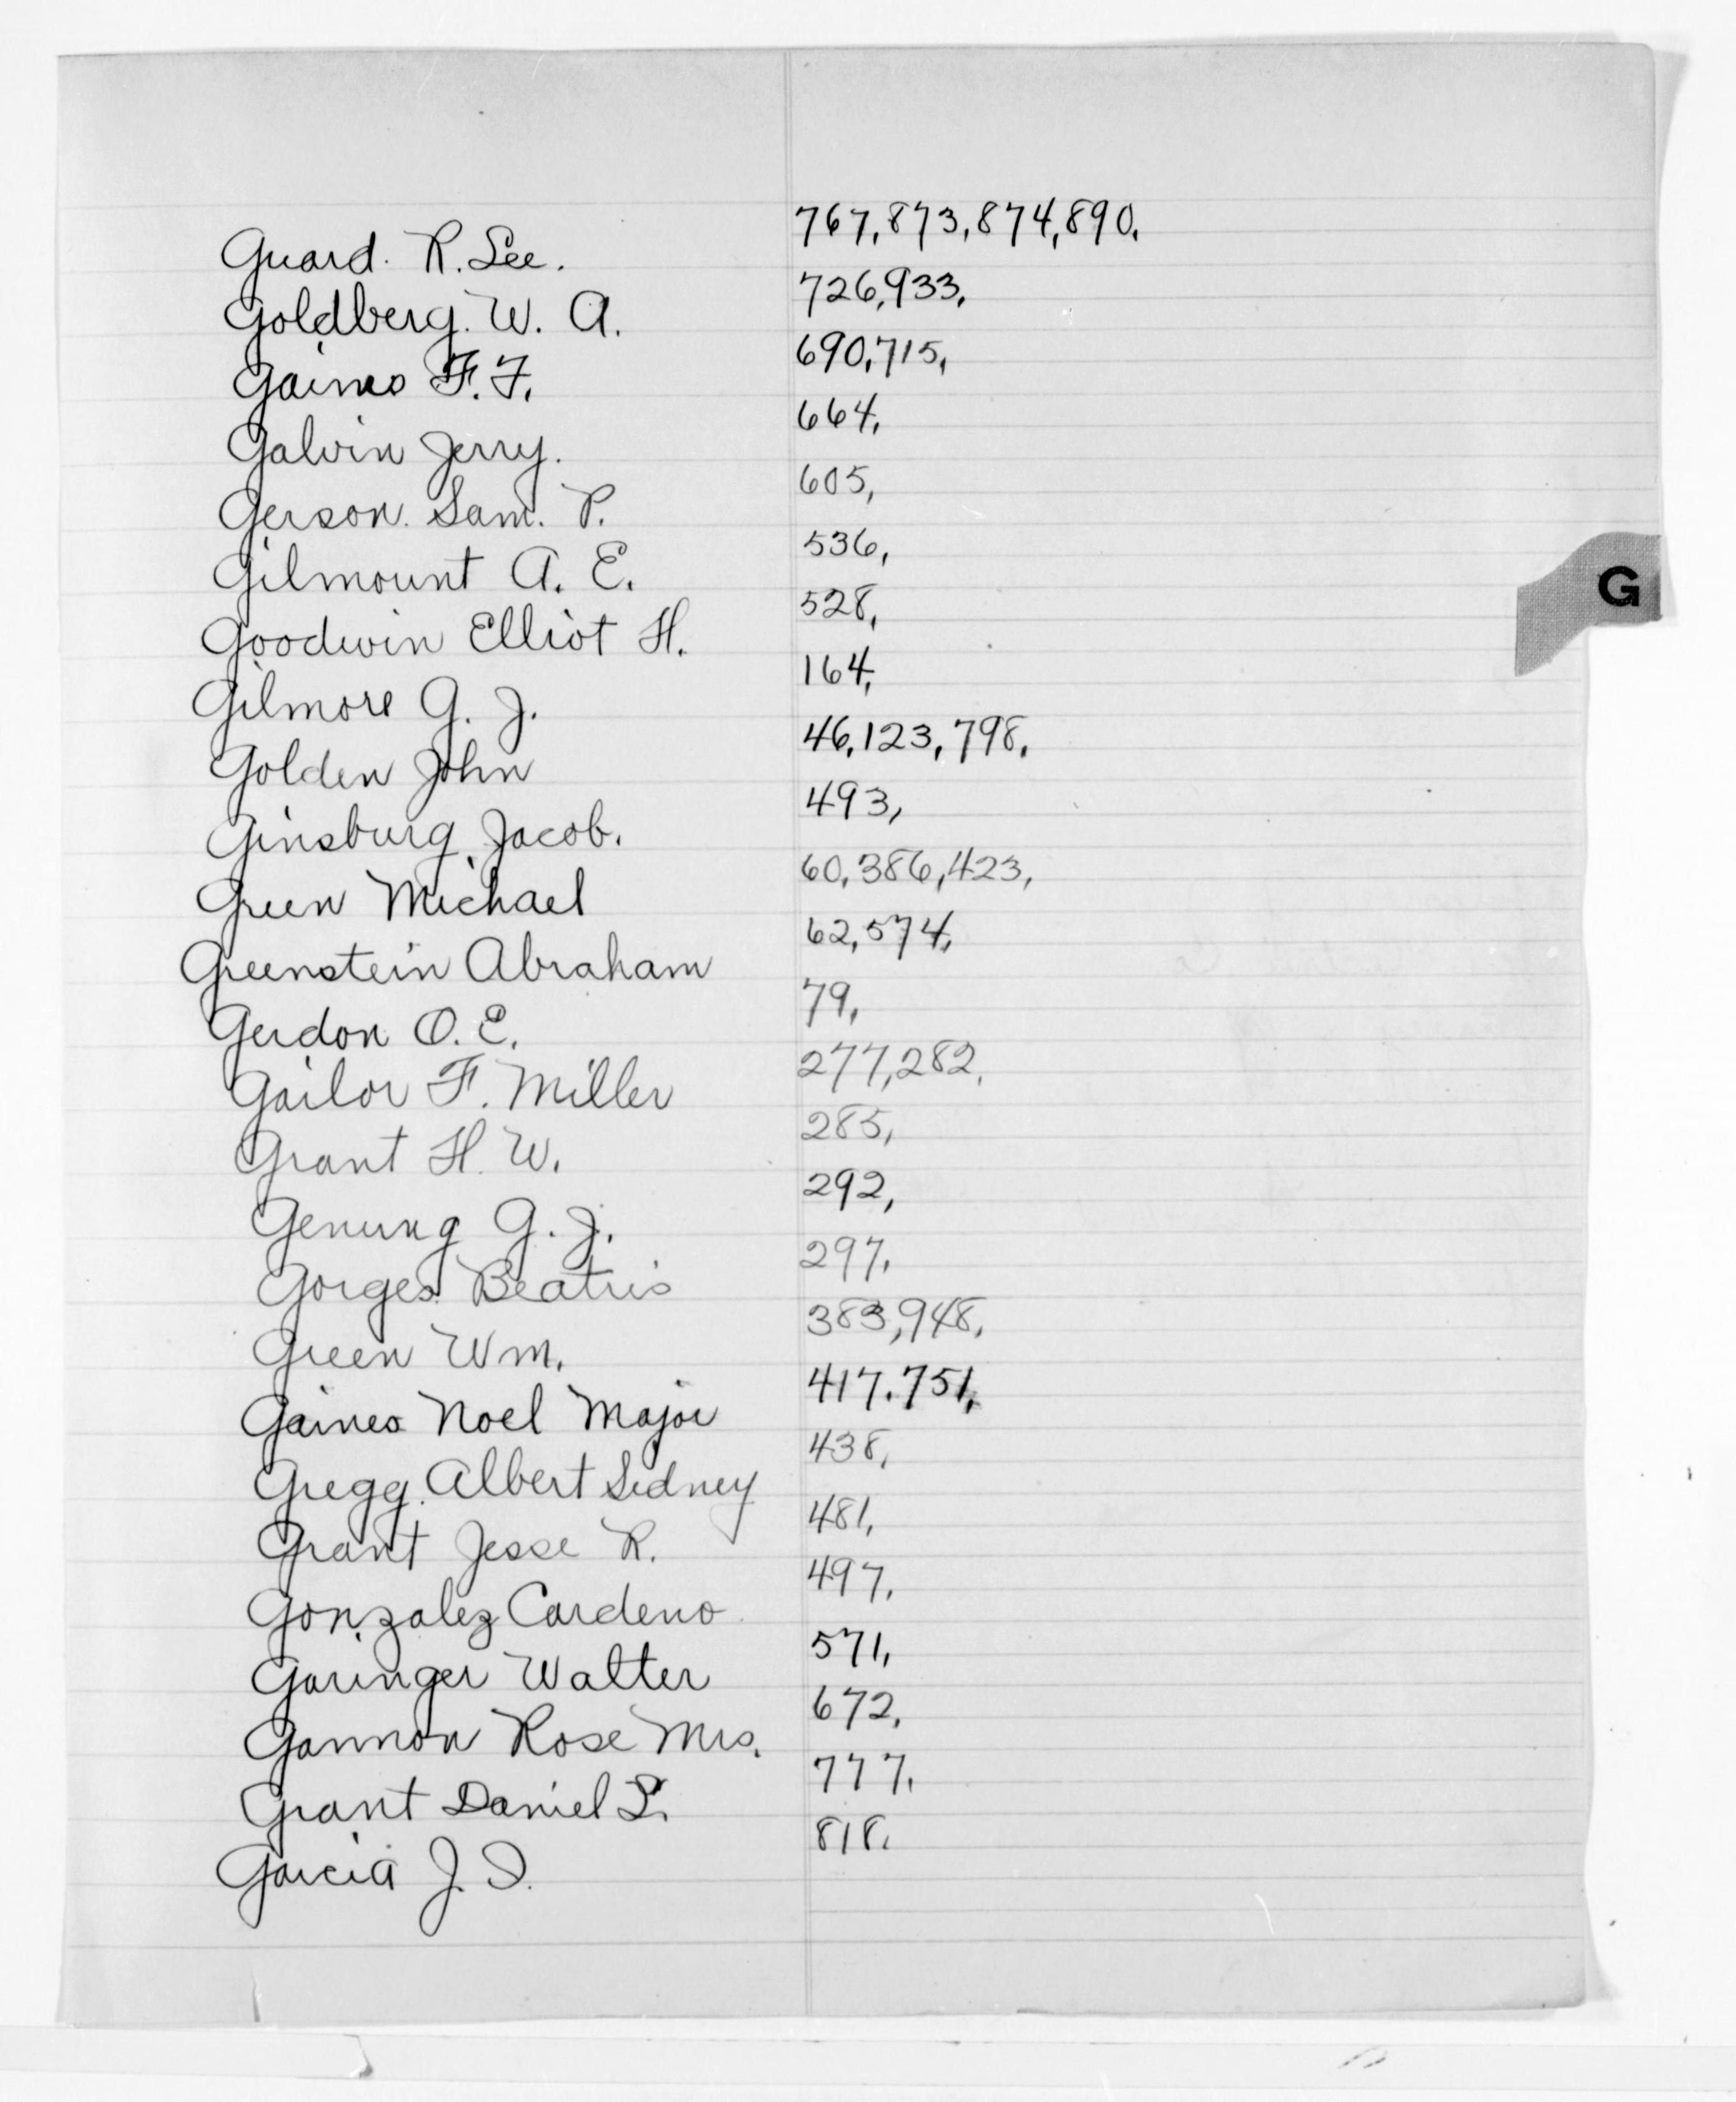 Guard. R. Lee. 767,873,874,890,
Goldberg. W. A. 726,933,
Gaines F. F. 690,715,
Galvin Jerry. 664,
Gerson. Sam. P. 605,
Gilmount A. E. 536,
Goodwin Elliot H. 528,
Gilmore G. J. 164,
Golden John 46,123,798,
Ginsburg Jacob. 493,
Green Michael 60,386,423,
Greenstein Abraham 62,574,
Gerdon O. E. 79,
Gailor F. Miller 277,282,
Grant H. W. 285,
Genung G. J. 292,
Gorges. Beatris 297,
Green Wm. 383,948,
Gaines Noel Major 417,751,
Gregg. Albert Sidney 438,
Grant Jesse R. 481,
Gonzalez Cardeno 497,
Garinger Walter 571,
Gannon Rose Mrs. 672,
Grant Daniel 777,
Garcia J. 818,
G